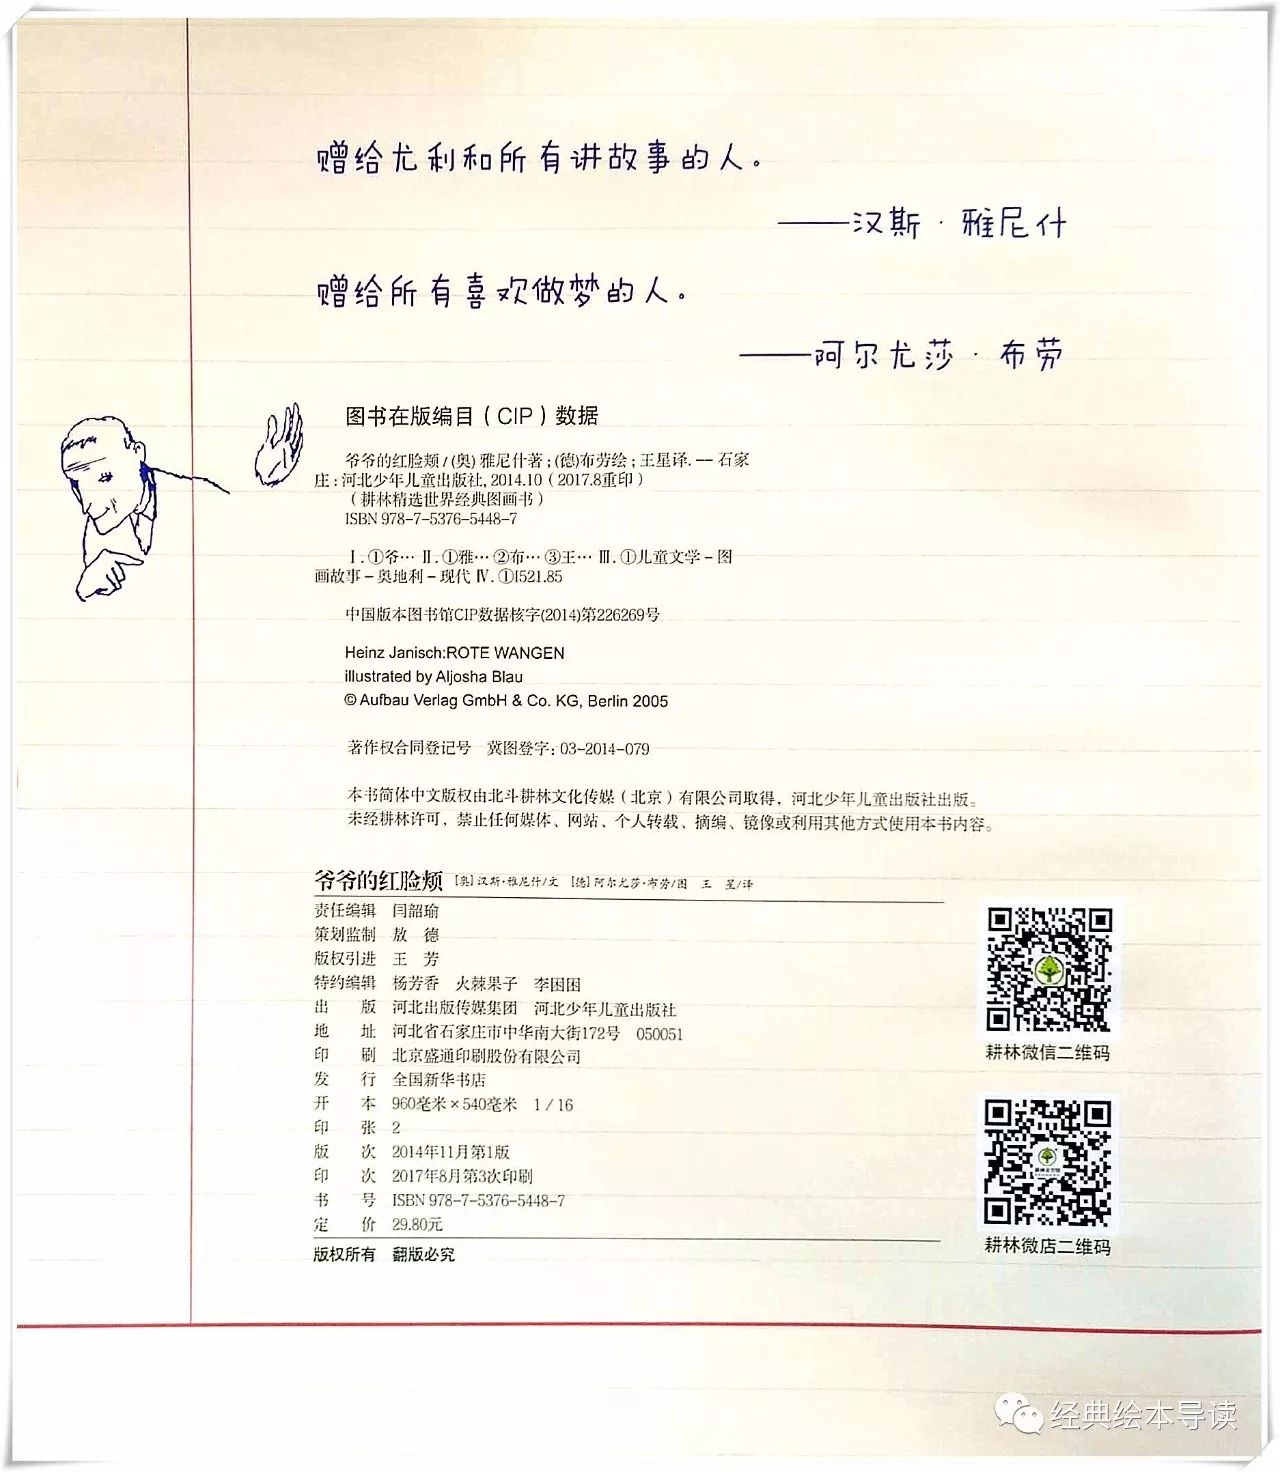 赠给尤利和所有讲故事的人。
——汉斯·雅尼什
赠给所有喜欢做梦的人。
——阿尔尤莎·布劳
图书在版编目（CIP）数据
爷爷的红脸颊/(奥)雅尼什著;(德)布劳绘;王星译.—石家
庄:河北少年儿童出版社,2014.10（2017.8重印）
（耕林精选世界经典图画书）
ISBN 978-7-5376-5448-7
Ⅰ.①爷… Ⅱ.①雅… ②布… ③王… Ⅲ.①儿童文学-图
画故事-奥地利-现代 Ⅳ.①I521.85
中国版本图书馆CIP数据核字(2014)第226269号
Heinz Janisch:ROTE WANGEN
illustrated by Aljosha Blau
© Aufbau Verlag GmbH & Co. KG, Berlin 2005
著作权合同登记号 冀图登字: 03-2014-079
本书简体中文版权由北斗耕林文化传媒（北京）有限公司取得，河北少年儿童出版社出版。
未经耕林许可，禁止任何媒体、网站、个人转载、摘编、镜像或利用其他方式使用本书内容。
爷爷的红脸颊 [奥]汉斯·雅尼什/文 [德]阿尔尤莎·布劳/图 王 星/译
责任编辑 闫韶瑜
策划监制 敖 德
版权引进 王 芳
特约编辑 杨芳香 火棘果子 李困困
出 版 河北出版传媒集团 河北少年儿童出版社
地 址 河北省石家庄市中华南大街172号 050051
印 刷 北京盛通印刷股份有限公司
发 行 全国新华书店
开 本 960毫米×540毫米 1/16
印 张 2
版 次 2014年11月第1版
印 次 2017年8月第3次印刷
书 号 ISBN 978-7-5376-5448-7
定 价 29.80元
版权所有 翻版必究
耕林微信二维码
耕林微店二维码
经典绘本导读